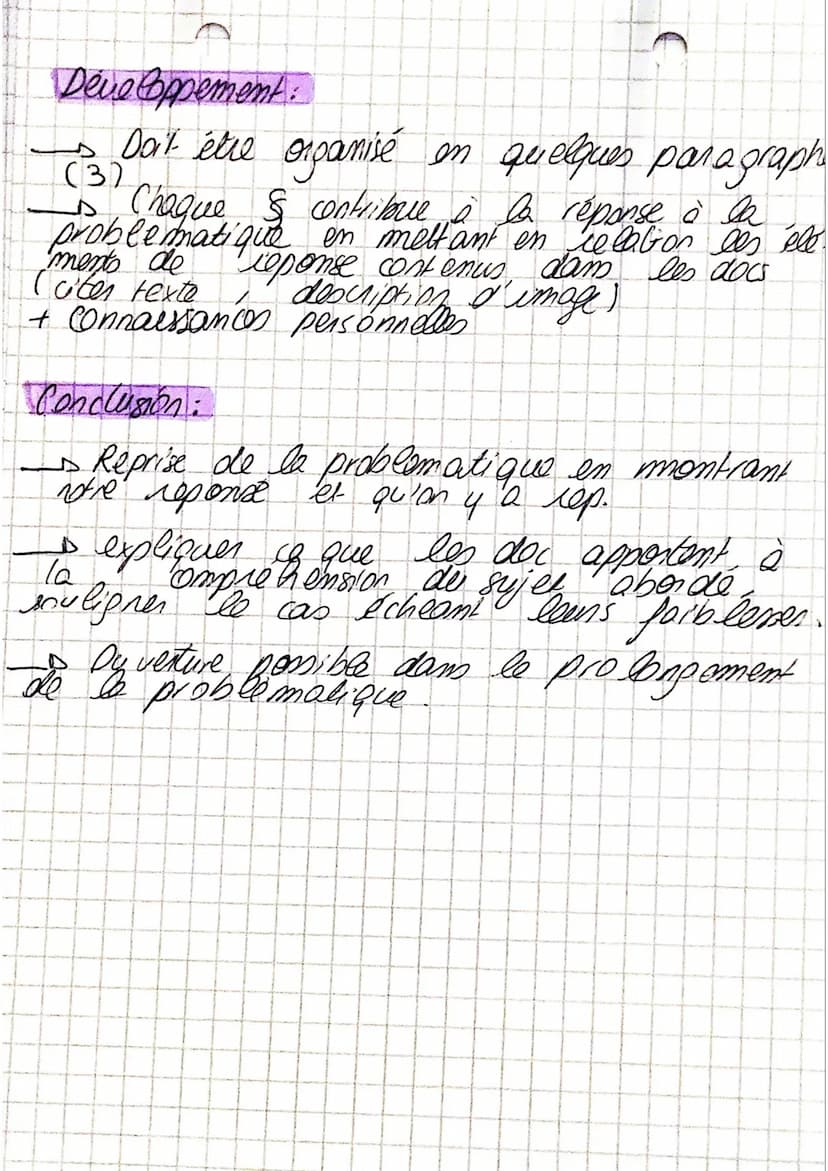 Développement :
→ Doit être organisé en quelques paragraph
(3)
→ Chaque § contribue à la réponse à la
problématique en mettant en relation les élé
ments de réponse contenus dans les docs
(citer texte, description d'image)
+ connaissances personnelles
Conclusion :
→ Reprise de la problématique en montrant
notre réponse et qu'on y a rép.
→ expliquer ce que les doc apportent à
la compréhension du sujet abordé,
souligner le cas échéant leurs faiblesses.
→ Ouverture possible dans le prolongement
de la problématique.